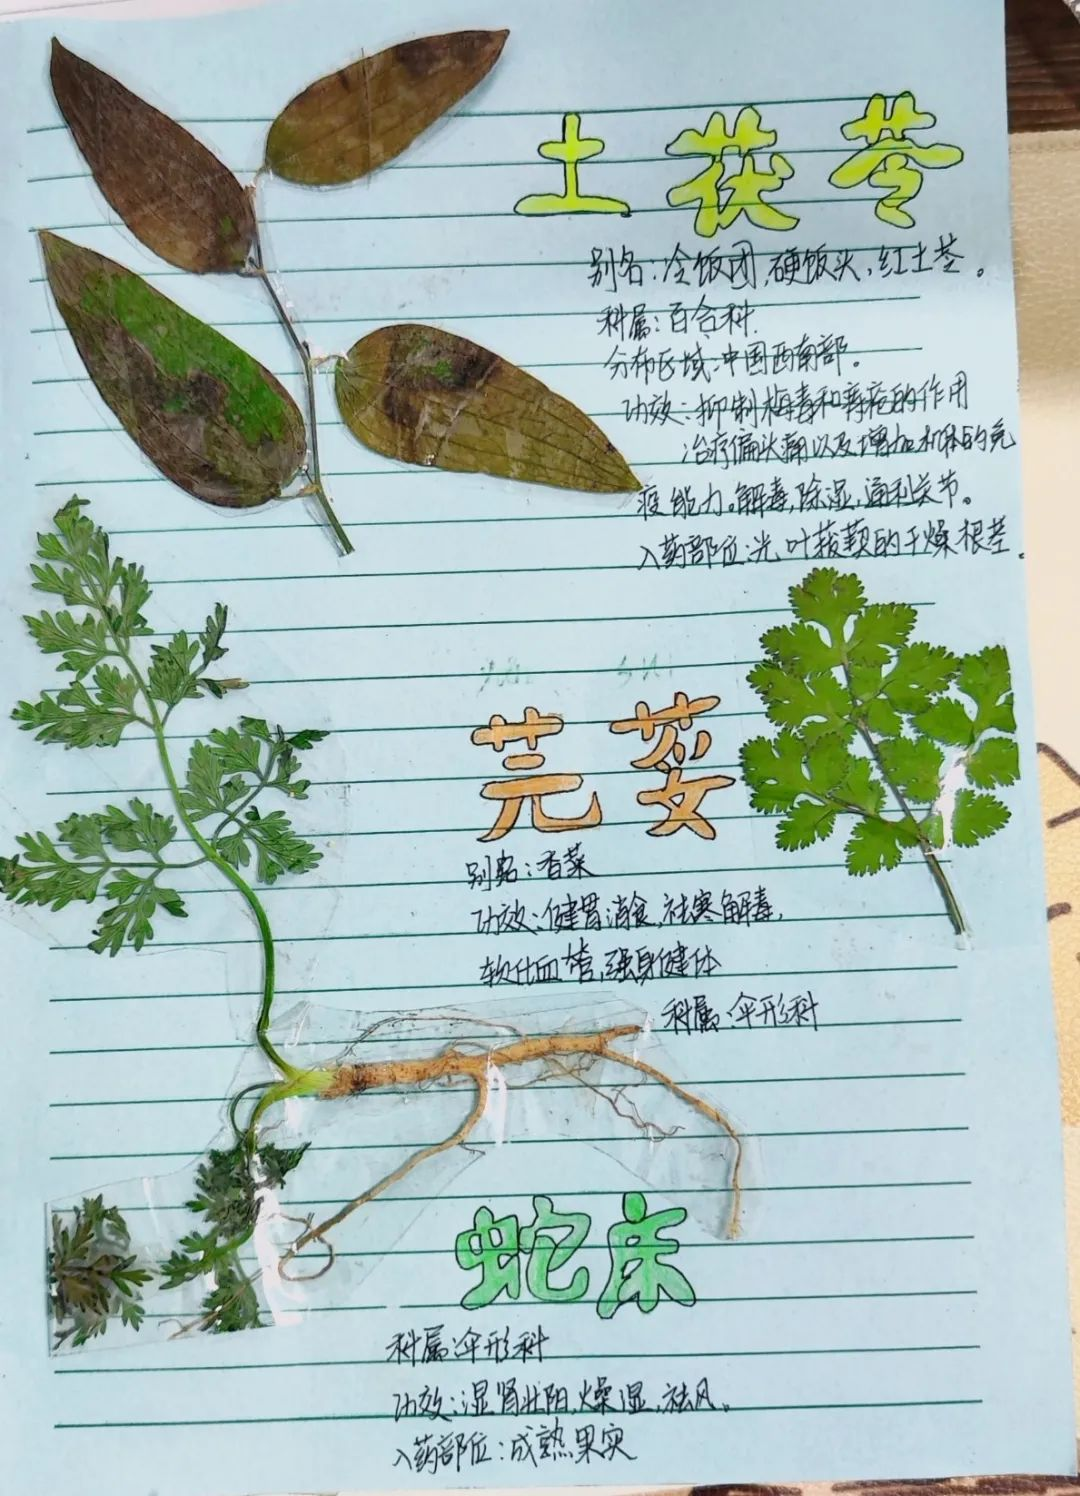 土茯苓
别名：冷饭团，硬饭头，红土苓。
科属：百合科
分布区域：中国西南部。
功效：抑制梅毒和痔疮的作用
治疗偏头痛以及增加机体的免
疫能力。解毒，除湿，通利关节。
入药部位：光叶菝葜的干燥根茎。
芫荽
别名：香菜
功效：健胃消食，祛寒解毒，
软化血管，强身健体
科属：伞形科
蛇床
科属：伞形科
功效：湿肾壮阳，燥湿，祛风。
入药部位：成熟果实